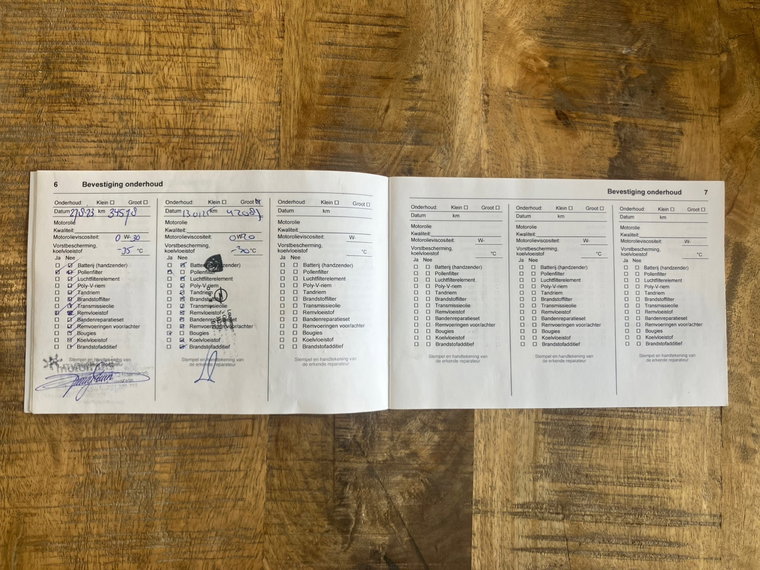 6 Bevestiging onderhoud
Onderhoud: Klein ☐ Groot ☐
Datum km
Motorolie
Kwaliteit:
Motorolieviscositeit: 0 W-30
Vorstbescherming,
koelvloeistof -35 °C
Ja Nee
Batterij (handzender)
Pollenfilter
Luchtfilterelement
Poly-V-riem
Tandriem
Brandstoffilter
Transmissieolie
Remvloeistof
Bandenreparatieset
Remvoeringen voor/achter
Bougies
Koelvloeistof
Brandstofadditief
Stempel en handtekening van
de erkende reparateur
Onderhoud: Klein ☐ Groot
Datum km
Motorolie
Kwaliteit:
Motorolieviscositeit: 0 W-20
Vorstbescherming,
koelvloeistof -30 °C
Ja Nee
Batterij (handzender)
Pollenfilter
Luchtfilterelement
Poly-V-riem
Tandriem
Brandstoffilter
Transmissieolie
Remvloeistof
Bandenreparatieset
Remvoeringen voor/achter
Bougies
Koelvloeistof
Brandstofadditief
Stempel en handtekening van
de erkende reparateur
Onderhoud: Klein ☐ Groot ☐
Datum km
Motorolie
Kwaliteit:
Motorolieviscositeit: W-
Vorstbescherming,
koelvloeistof °C
Ja Nee
☐ ☐ Batterij (handzender)
☐ ☐ Pollenfilter
☐ ☐ Luchtfilterelement
☐ ☐ Poly-V-riem
☐ ☐ Tandriem
☐ ☐ Brandstoffilter
☐ ☐ Transmissieolie
☐ ☐ Remvloeistof
☐ ☐ Bandenreparatieset
☐ ☐ Remvoeringen voor/achter
☐ ☐ Bougies
☐ ☐ Koelvloeistof
☐ ☐ Brandstofadditief
Stempel en handtekening van
de erkende reparateur
Bevestiging onderhoud 7
Onderhoud: Klein ☐ Groot ☐
Datum km
Motorolie
Kwaliteit:
Motorolieviscositeit: W-
Vorstbescherming,
koelvloeistof °C
Ja Nee
☐ ☐ Batterij (handzender)
☐ ☐ Pollenfilter
☐ ☐ Luchtfilterelement
☐ ☐ Poly-V-riem
☐ ☐ Tandriem
☐ ☐ Brandstoffilter
☐ ☐ Transmissieolie
☐ ☐ Remvloeistof
☐ ☐ Bandenreparatieset
☐ ☐ Remvoeringen voor/achter
☐ ☐ Bougies
☐ ☐ Koelvloeistof
☐ ☐ Brandstofadditief
Stempel en handtekening van
de erkende reparateur
Onderhoud: Klein ☐ Groot ☐
Datum km
Motorolie
Kwaliteit:
Motorolieviscositeit: W-
Vorstbescherming,
koelvloeistof °C
Ja Nee
☐ ☐ Batterij (handzender)
☐ ☐ Pollenfilter
☐ ☐ Luchtfilterelement
☐ ☐ Poly-V-riem
☐ ☐ Tandriem
☐ ☐ Brandstoffilter
☐ ☐ Transmissieolie
☐ ☐ Remvloeistof
☐ ☐ Bandenreparatieset
☐ ☐ Remvoeringen voor/achter
☐ ☐ Bougies
☐ ☐ Koelvloeistof
☐ ☐ Brandstofadditief
Stempel en handtekening van
de erkende reparateur
Onderhoud: Klein ☐ Groot ☐
Datum km
Motorolie
Kwaliteit:
Motorolieviscositeit: W-
Vorstbescherming,
koelvloeistof °C
Ja Nee
☐ ☐ Batterij (handzender)
☐ ☐ Pollenfilter
☐ ☐ Luchtfilterelement
☐ ☐ Poly-V-riem
☐ ☐ Tandriem
☐ ☐ Brandstoffilter
☐ ☐ Transmissieolie
☐ ☐ Remvloeistof
☐ ☐ Bandenreparatieset
☐ ☐ Remvoeringen voor/achter
☐ ☐ Bougies
☐ ☐ Koelvloeistof
☐ ☐ Brandstofadditief
Stempel en handtekening van
de erkende reparateur